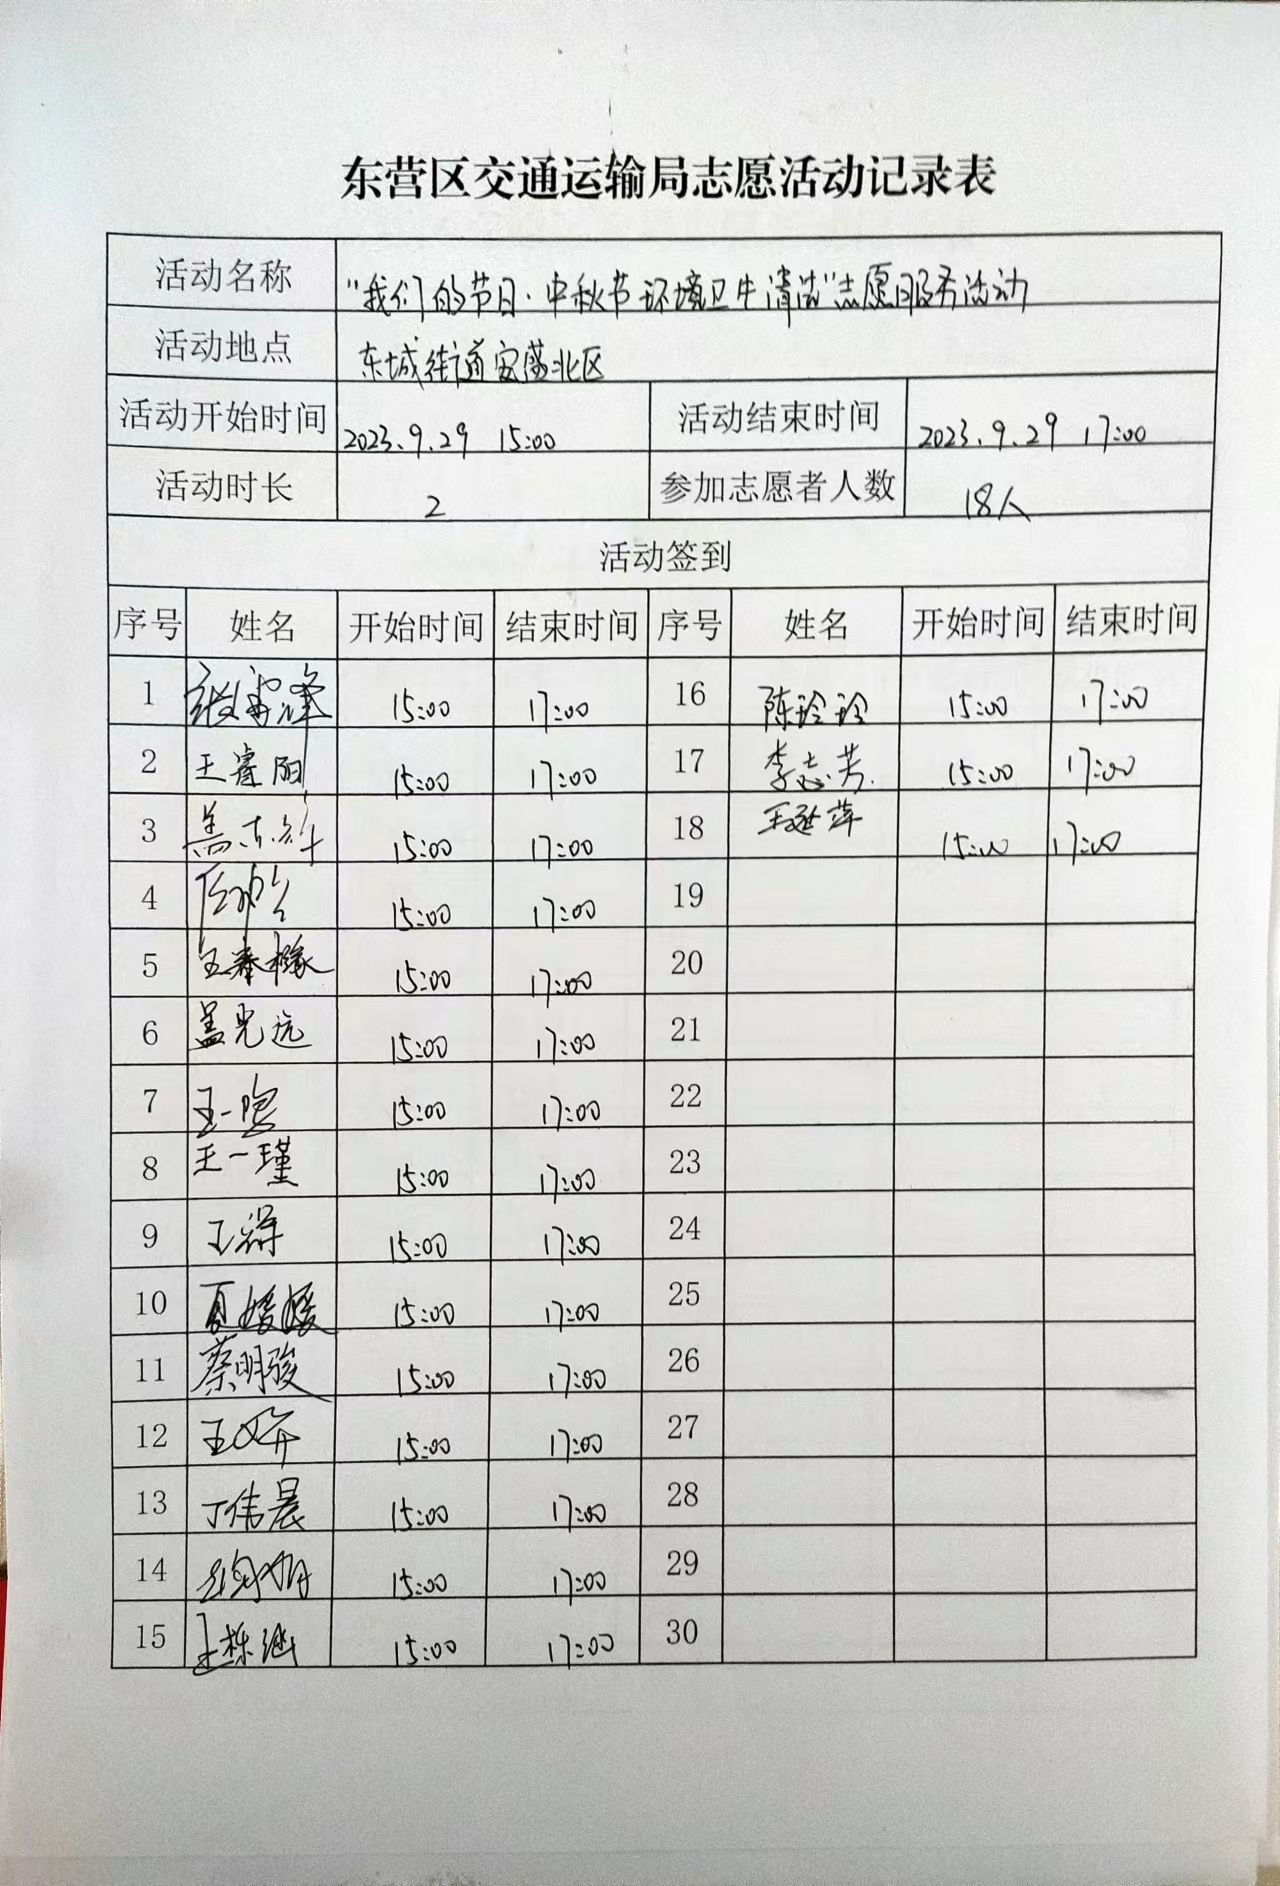 东营区交通运输局志愿活动记录表
活动名称 “我们的节日·中秋节环境卫生清洁”志愿服务活动
活动地点 东城街道宏盛北区
活动开始时间 2023.9.29 15:00 活动结束时间 2023.9.29 17:00
活动时长 2 参加志愿者人数 18人
活动签到
序号 姓名 开始时间 结束时间 序号 姓名 开始时间 结束时间
1 15:00 17:00 16 陈玲玲 15:00 17:00
2 王睿阳 15:00 17:00 17 李志芳 15:00 17:00
3 15:00 17:00 18 王延萍 15:00 17:00
4 15:00 17:00 19
5 15:00 17:00 20
6 盖光远 15:00 17:00 21
7 15:00 17:00 22
8 王一瑾 15:00 17:00 23
9 15:00 17:00 24
10 夏媛媛 15:00 17:00 25
11 蔡明骏 15:00 17:00 26
12 15:00 17:00 27
13 丁伟晨 15:00 17:00 28
14 15:00 17:00 29
15 15:00 17:00 30